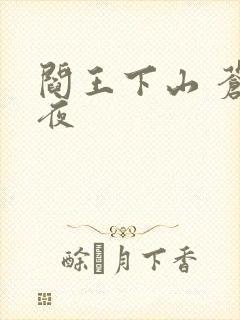 閻王下山 蒼
夜
醉月下香